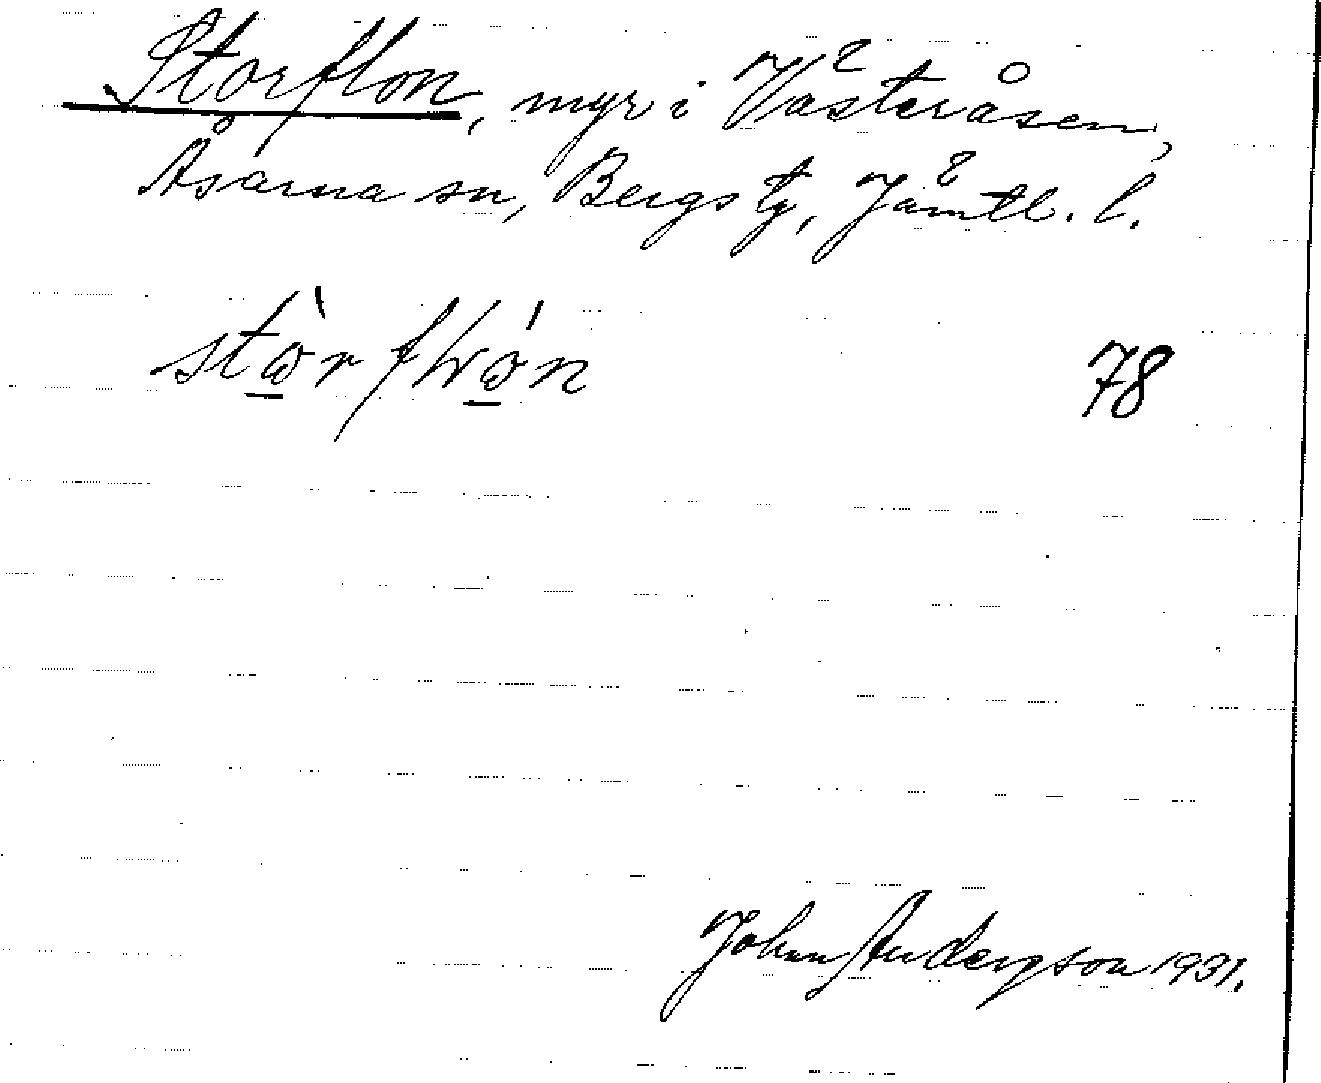 Storflon, myr i Västeråsen,
Åsarna sn, Bergs tg, Jämtl. l.
78
John Andersson 1931.